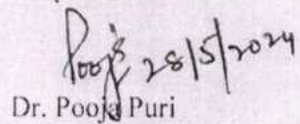 Pooja 28/5/2024
Dr. Pooja Puri